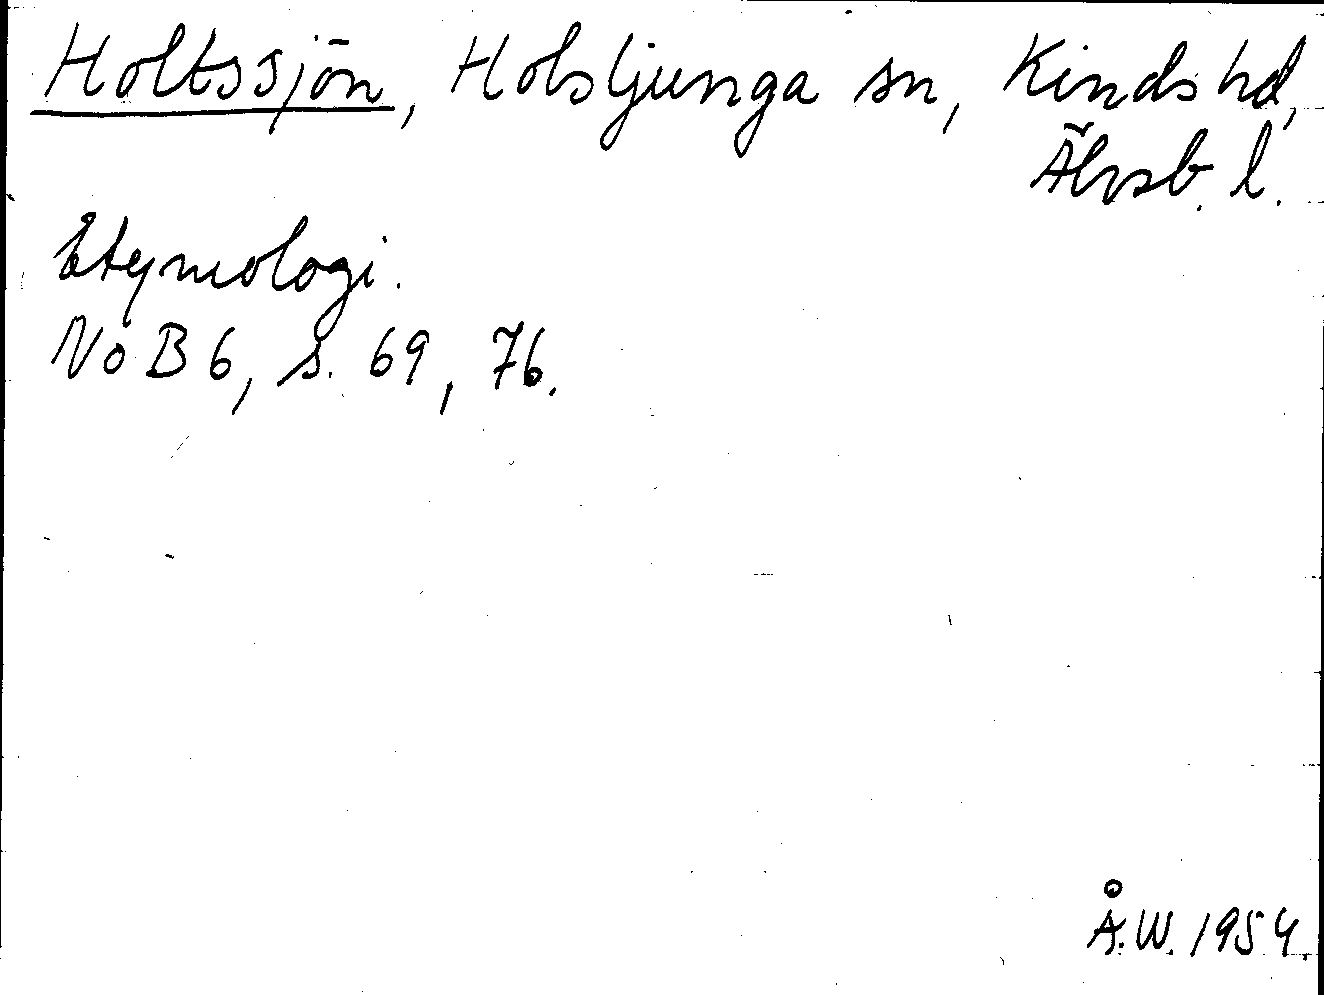 Holtssjön, Holsljunga sn, Kinds hd,
Älvsb. l.
Etymologi.
NoB 6, s. 69, 76.
Å.W. 1954.